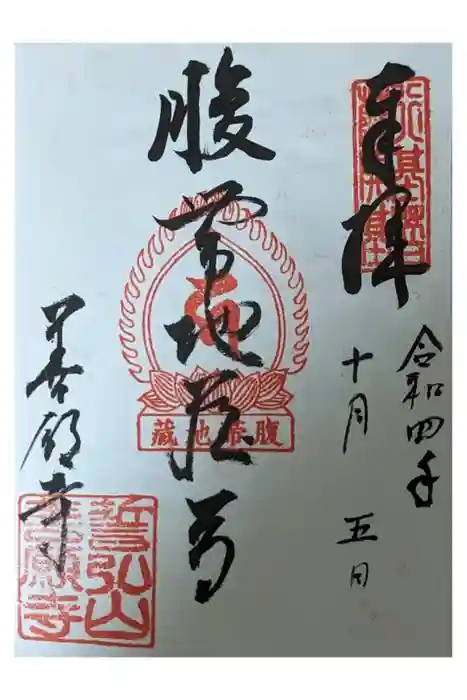 奉拝
令和四年
十月 五日
腹帯地蔵尊
腹帯地蔵
善願寺
誓弘山
善願寺